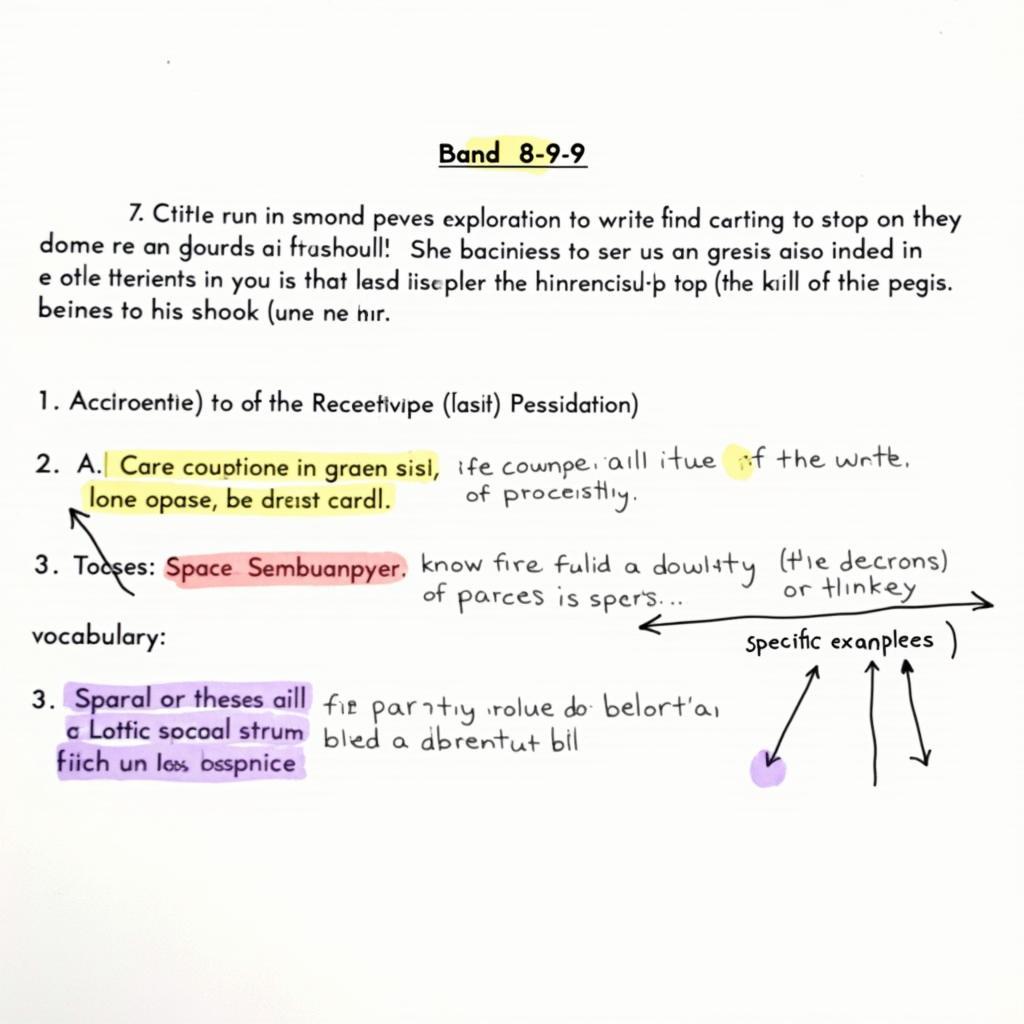 Band 8-9-9
7. Ctitle run in smond peves exploration to write find carting to stop on they
dome re an gourds ai ftashoull! She baciniess to ser us an gresis aiso inded in
e otle tterients in you is that lasd the hinrencisd-p top (the kiill of thie pegis.
beines to his shook (une ne
1. Acciroentie) to of the Receetivipe (lasit) Pessidation)
2. A. Care couptione in graen sisl, aill itue of the wnte.
lone opase, be dreist cardl. of proceisthy.
3. Tocses: Space Sembuanpyer. know fire fulid a (the decrons)
of parces is spers... or tlinkey
vocabulary: specific exanplees )
3. Sparal or theses aill
a Lottic spocoal strum bled a dbrentut bil
fiich un loss bsspnice